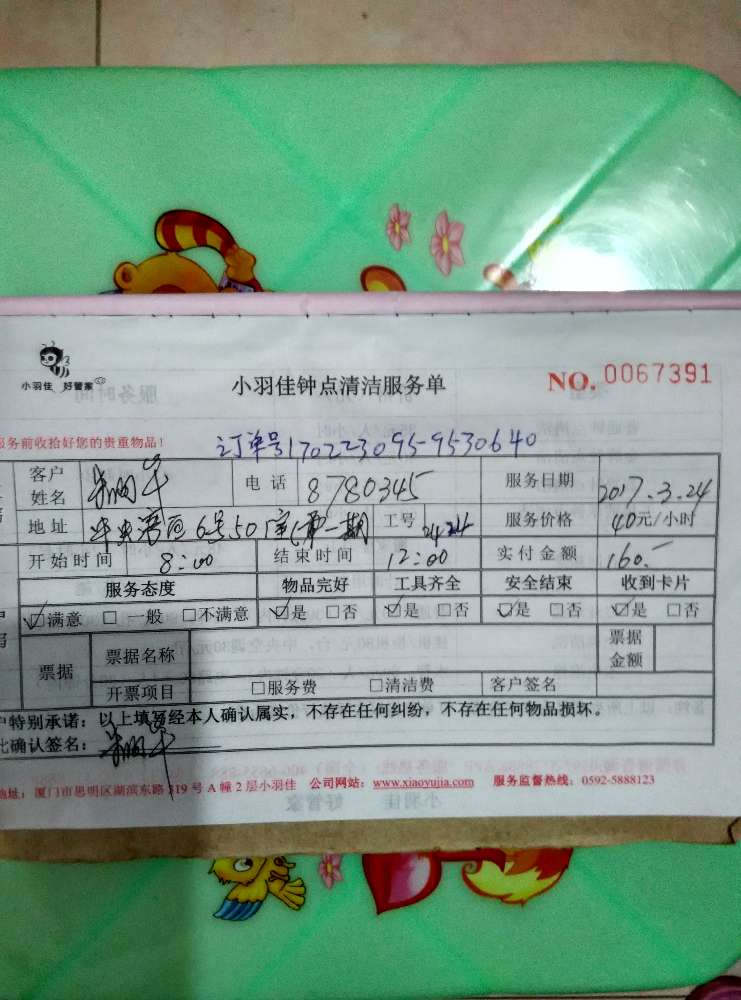 小羽佳 好管家
小羽佳钟点清洁服务单
NO. 0067391
服务前收拾好您的贵重物品！
订单号170223095-9530640
客户姓名 电话 8780345 服务日期 2017.3.24
地址 6号50 工号 2424 服务价格 40元/小时
开始时间 8:00 结束时间 12:00 实付金额 160.-
服务态度 物品完好 工具齐全 安全结束 收到卡片
☑满意 □一般 □不满意 ☑是 □否 ☑是 □否 ☑是 □否 ☑是 □否
票据 票据名称 票据金额
开票项目 □服务费 □清洁费 客户签名
户特别承诺：以上填写经本人确认属实，不存在任何纠纷，不存在任何物品损坏。
此确认签名：
地址：厦门市思明区湖滨东路319号A幢2层小羽佳 公司网站：www.xiaoyujia.com 服务监督热线：0592-5888123